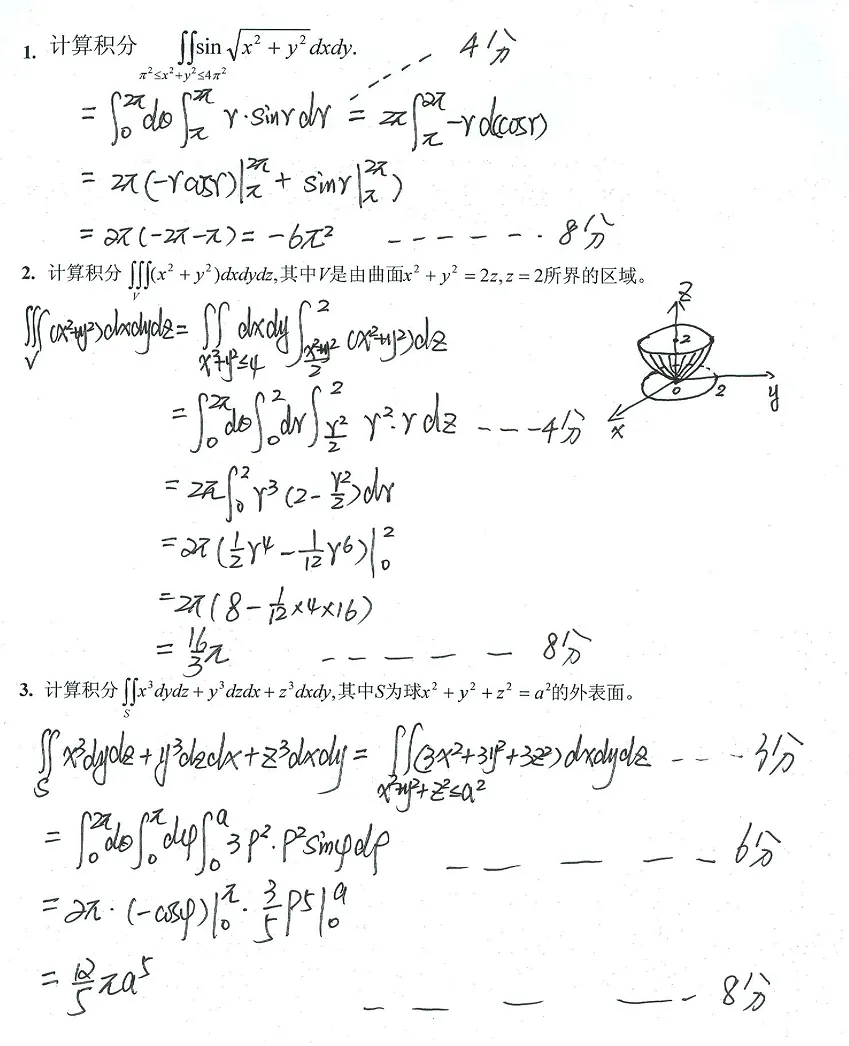 1. 计算积分 ∬_{π²≤x²+y²≤4π²} sin √(x² + y²) dxdy. 4分
= ∫₀^{2π} dθ ∫_π^{2π} r·sinr dr = 2π ∫_π^{2π} -r d(cosr)
= 2π(-r cosr)|_π^{2π} + sinr|_π^{2π})
= 2π(-2π-π) = -6π² ------- 8分
2. 计算积分 ∭_V (x² + y²)dxdydz, 其中V是由曲面x² + y² = 2z, z = 2所界的区域。
∭_V (x²+y²)dxdydz = ∬_{x²+y²≤4} dxdy ∫_{(x²+y²)/2}^2 (x²+y²)dz
z
2
0
2
y
x
= ∫₀^{2π} dθ ∫₀² dr ∫_{r²/2}^2 r²·r dz ----4分
= 2π ∫₀² r³ (2 - r²/2) dr
= 2π (1/2 r⁴ - 1/12 r⁶)|₀²
= 2π (8 - 1/12 ×4×16)
= 16/3 π ------ 8分
3. 计算积分 ∬_S x³dydz + y³dzdx + z³dxdy, 其中S为球x² + y² + z² = a²的外表面。
∬_S x³dydz + y³dzdx + z³dxdy = ∭_{x²+y²+z²≤a²} (3x²+3y²+3z²) dxdydz ---- 3分
= ∫₀^{2π} dθ ∫₀^π dφ ∫₀^a 3ρ²·ρ² sinφ dρ ----- 6分
= 2π·(-cosφ)|₀^π · 3/5 ρ⁵|₀^a
= 12/5 πa⁵ ----- 8分